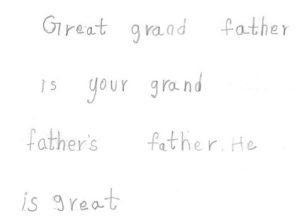 Great grand father
is your grand
father's father. He
is great